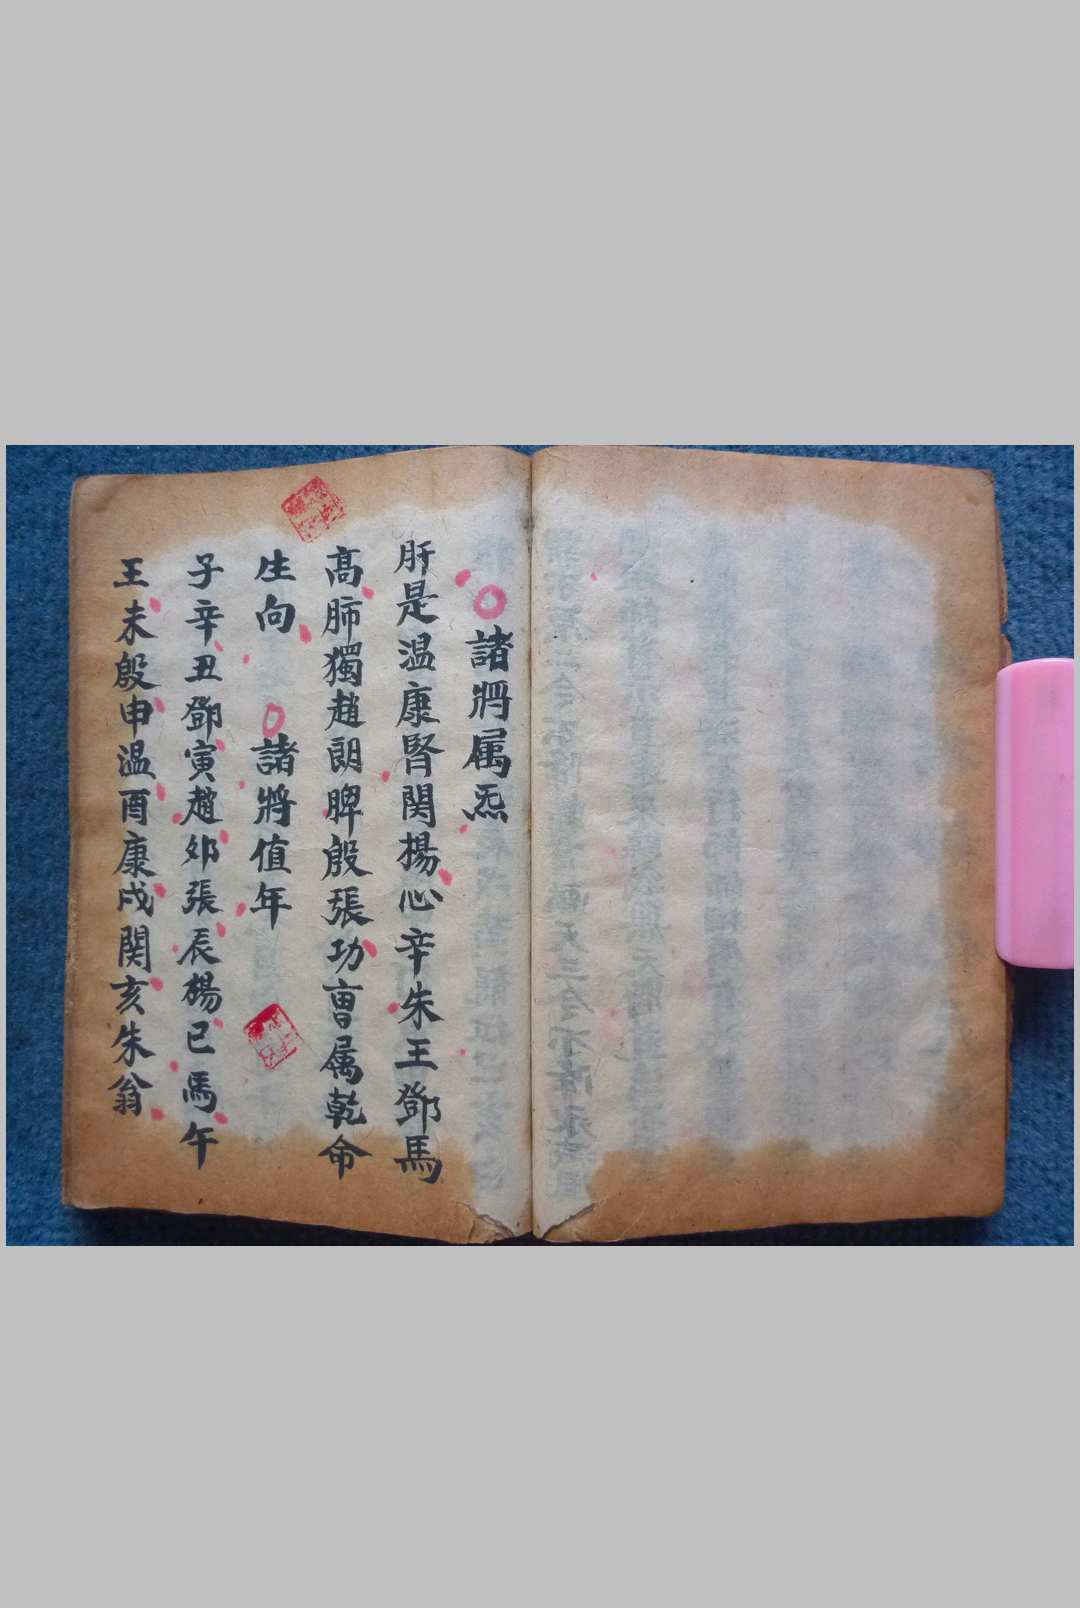 諸將属炁
肝是温康腎関楊心辛朱王鄧馬
高肺獨趙朗脾殷張功曺属乾命
生向 諸將值年
子辛丑鄧寅趙夘張辰楊巳馬午
王未殷申温酉康戌関亥朱翁